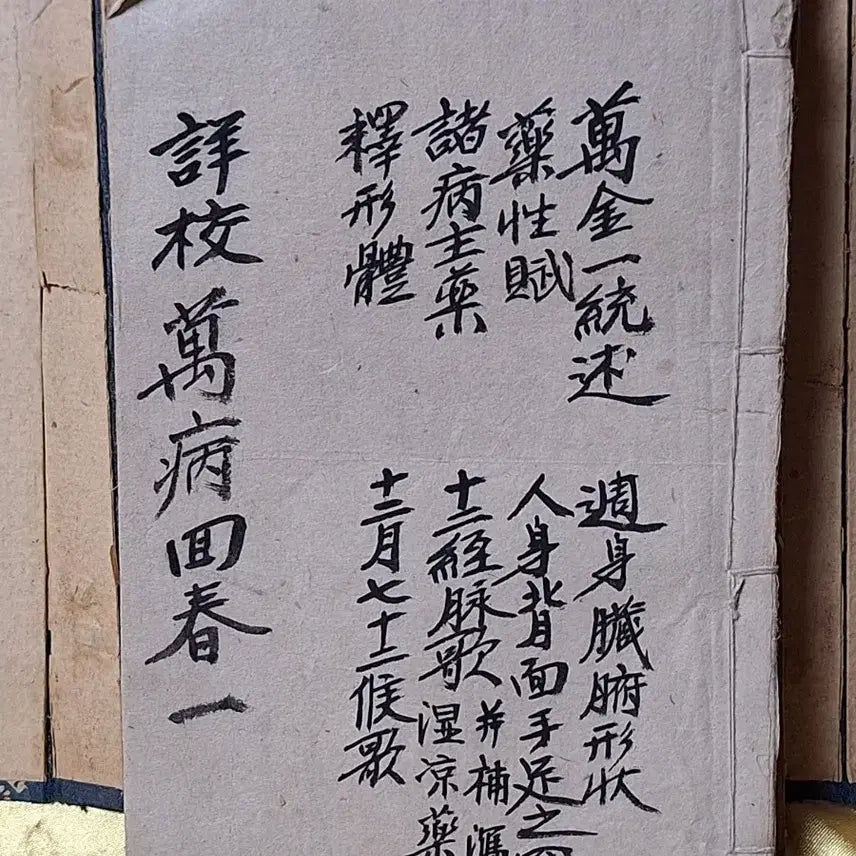 萬金一統述
藥性賦
諸病主薬
釋形體
週身臓腑形状
人身背面手足之
十二經脉歌 并補
湿凉藥
十二月七十二候歌
詳校萬病回春一